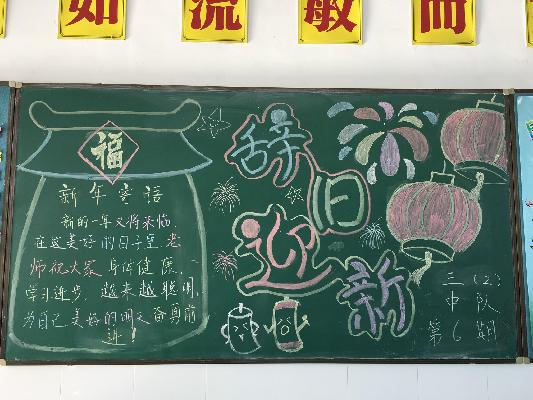 如流敏而
福
新年寄语
新的一年又将来临
在这美好的日子里,老
师祝大家身体健康、
学习进步,越来越聪明,
为自己美好的明天奋勇前
进!
辞旧迎新
三(2)
中队
第6期